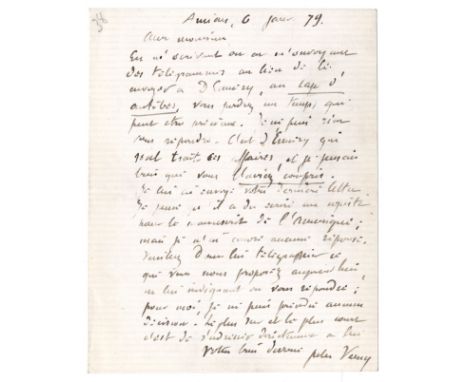 Amiens, 6 janv. 79.
Cher monsieur
En m'écrivant ou en m'envoyant
des télégrammes au lieu de les
envoyer à D'Ennery, au cap d'
antibes, vous perdez un temps qui
peut être précieux. Je ne puis rien
vous répondre. C'est D'Ennery qui
seul traite ces affaires, et je pensais
bien que vous l'aviez compris.
Je lui ai envoyé votre dernière lettre.
Je pense qu'il a dû écrire
pour le manuscrit de l'Amérique;
mais je n'ai encore aucune réponse.
Veuillez donc lui télégraphier ce
que vous nous proposez aujourd'hui,
en lui indiquant où vous répondre;
pour moi, je ne puis prendre aucune
décision. Le plus sûr et le plus court
c'est de s'adresser directement à lui
votre bien dévoué Jules Verne